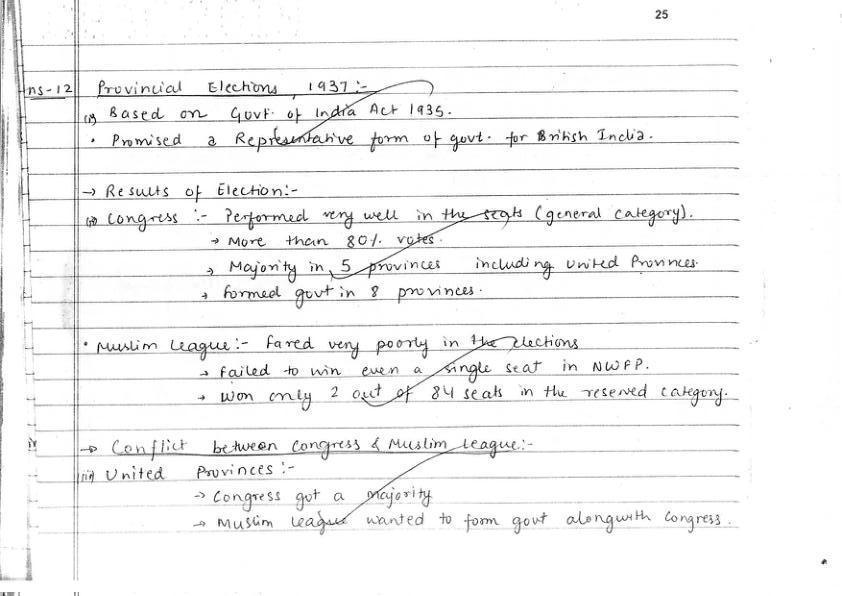 25
ns-12 Provincial Elections, 1937:-
(i) Based on Govt. of India Act 1935.
• Promised a Representative form of govt. for British India.
→ Results of Election:-
(ii) Congress :- Performed very well in the seats (general category).
→ More than 80% votes.
→ Majority in 5 provinces including United Provinces.
→ formed govt in 8 provinces.
• Muslim League:- Fared very poorly in the elections
→ Failed to win even a single seat in NWFP.
→ Won only 2 out of 84 seats in the reserved category.
→ Conflict between Congress & Muslim League:-
(iii) United Provinces :-
→ Congress got a majority
→ Muslim League wanted to form govt alongwith Congress.